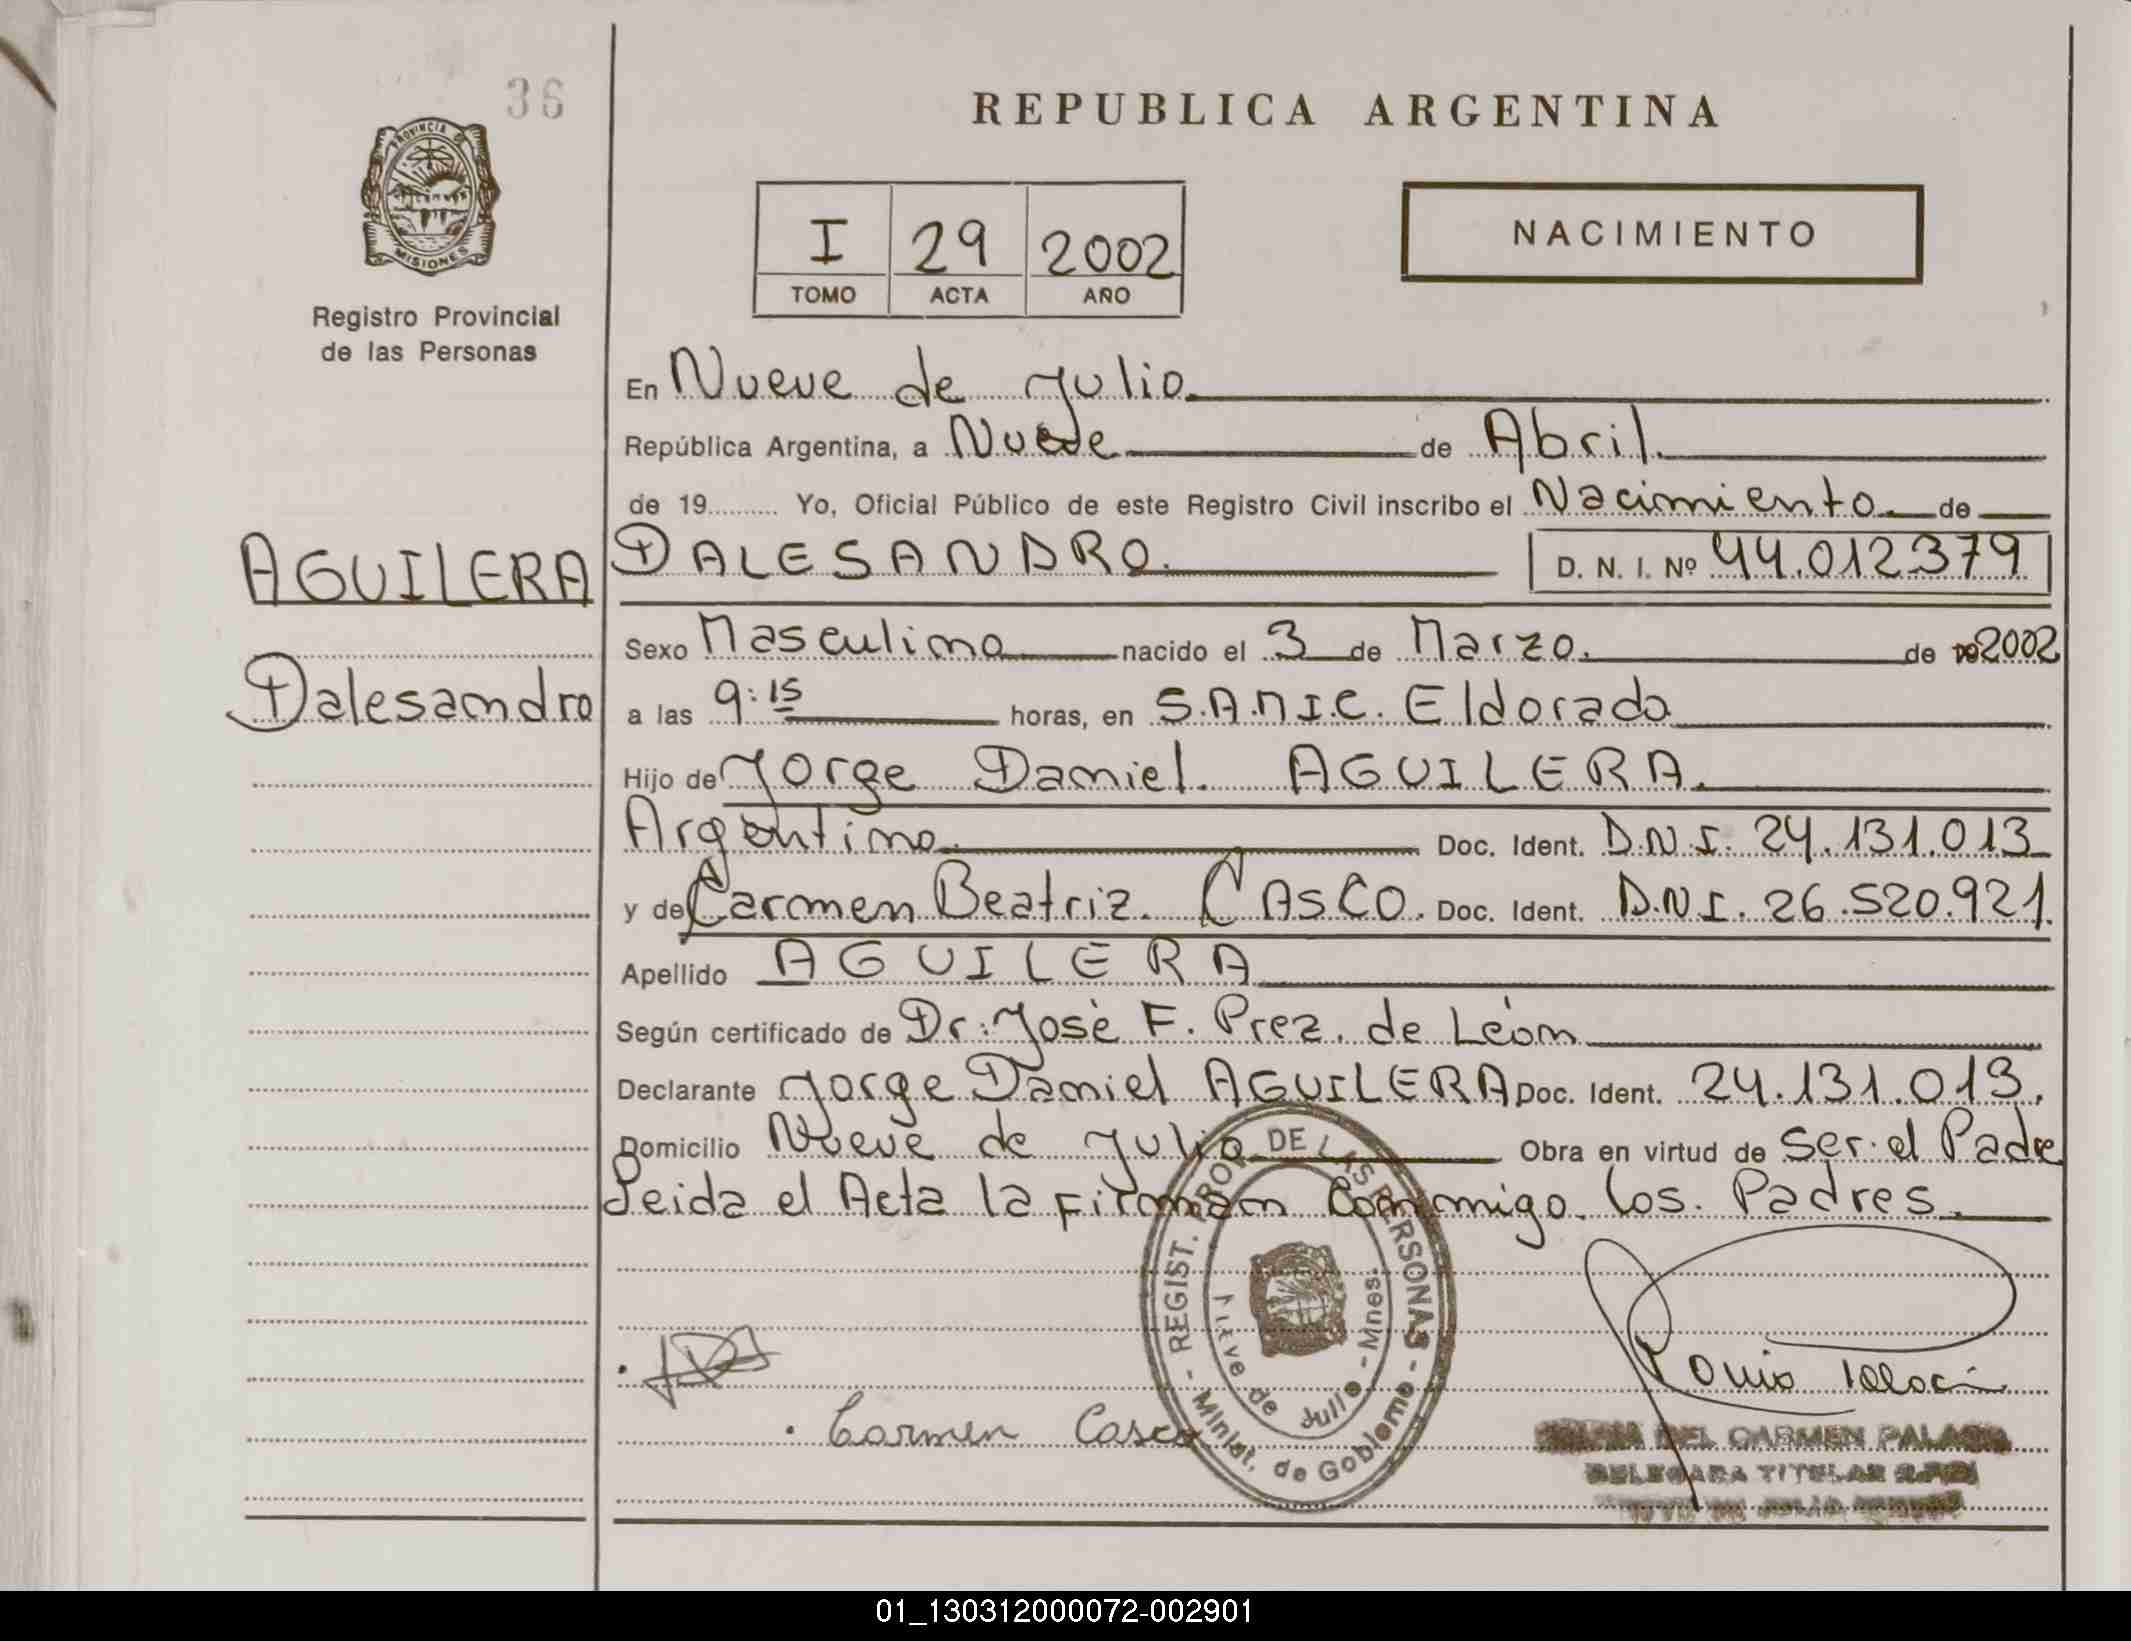 36
REPUBLICA ARGENTINA
PROVINCIA DE
MISIONES
Registro Provincial
de las Personas
I 29 2002
TOMO ACTA AÑO
NACIMIENTO
En Nueve de Julio
República Argentina, a Nueve de Abril
de 19.......... Yo, Oficial Público de este Registro Civil inscribo el Nacimiento de
AGUILERA DALESANDRO. D. N. I. Nº 44.012.379
Sexo Masculino nacido el 3 de Marzo. de 2002
Dalesandro a las 9:15 horas, en S.A.M.I.C. Eldorado
Hijo de Jorge Daniel. AGUILERA.
Argentino. Doc. Ident. D.N.I. 24.131.013
y de Carmen Beatriz. CASCO. Doc. Ident. D.N.I. 26.520.921.
Apellido AGUILERA
Según certificado de Dr: José F. Prez. de León
Declarante Jorge Daniel AGUILERA Doc. Ident. 24.131.013.
Domicilio Nueve de Julio Obra en virtud de Ser el Padre
Leida el Acta la Firman Conmigo. los. Padres.
REGIST. PROV. DE LAS PERSONAS
- Minist. de Gobierno -
Nueve de Julio - Mnes.
Carmen Casco
DEL CARMEN PALACIO
TITULAR
01_130312000072-002901